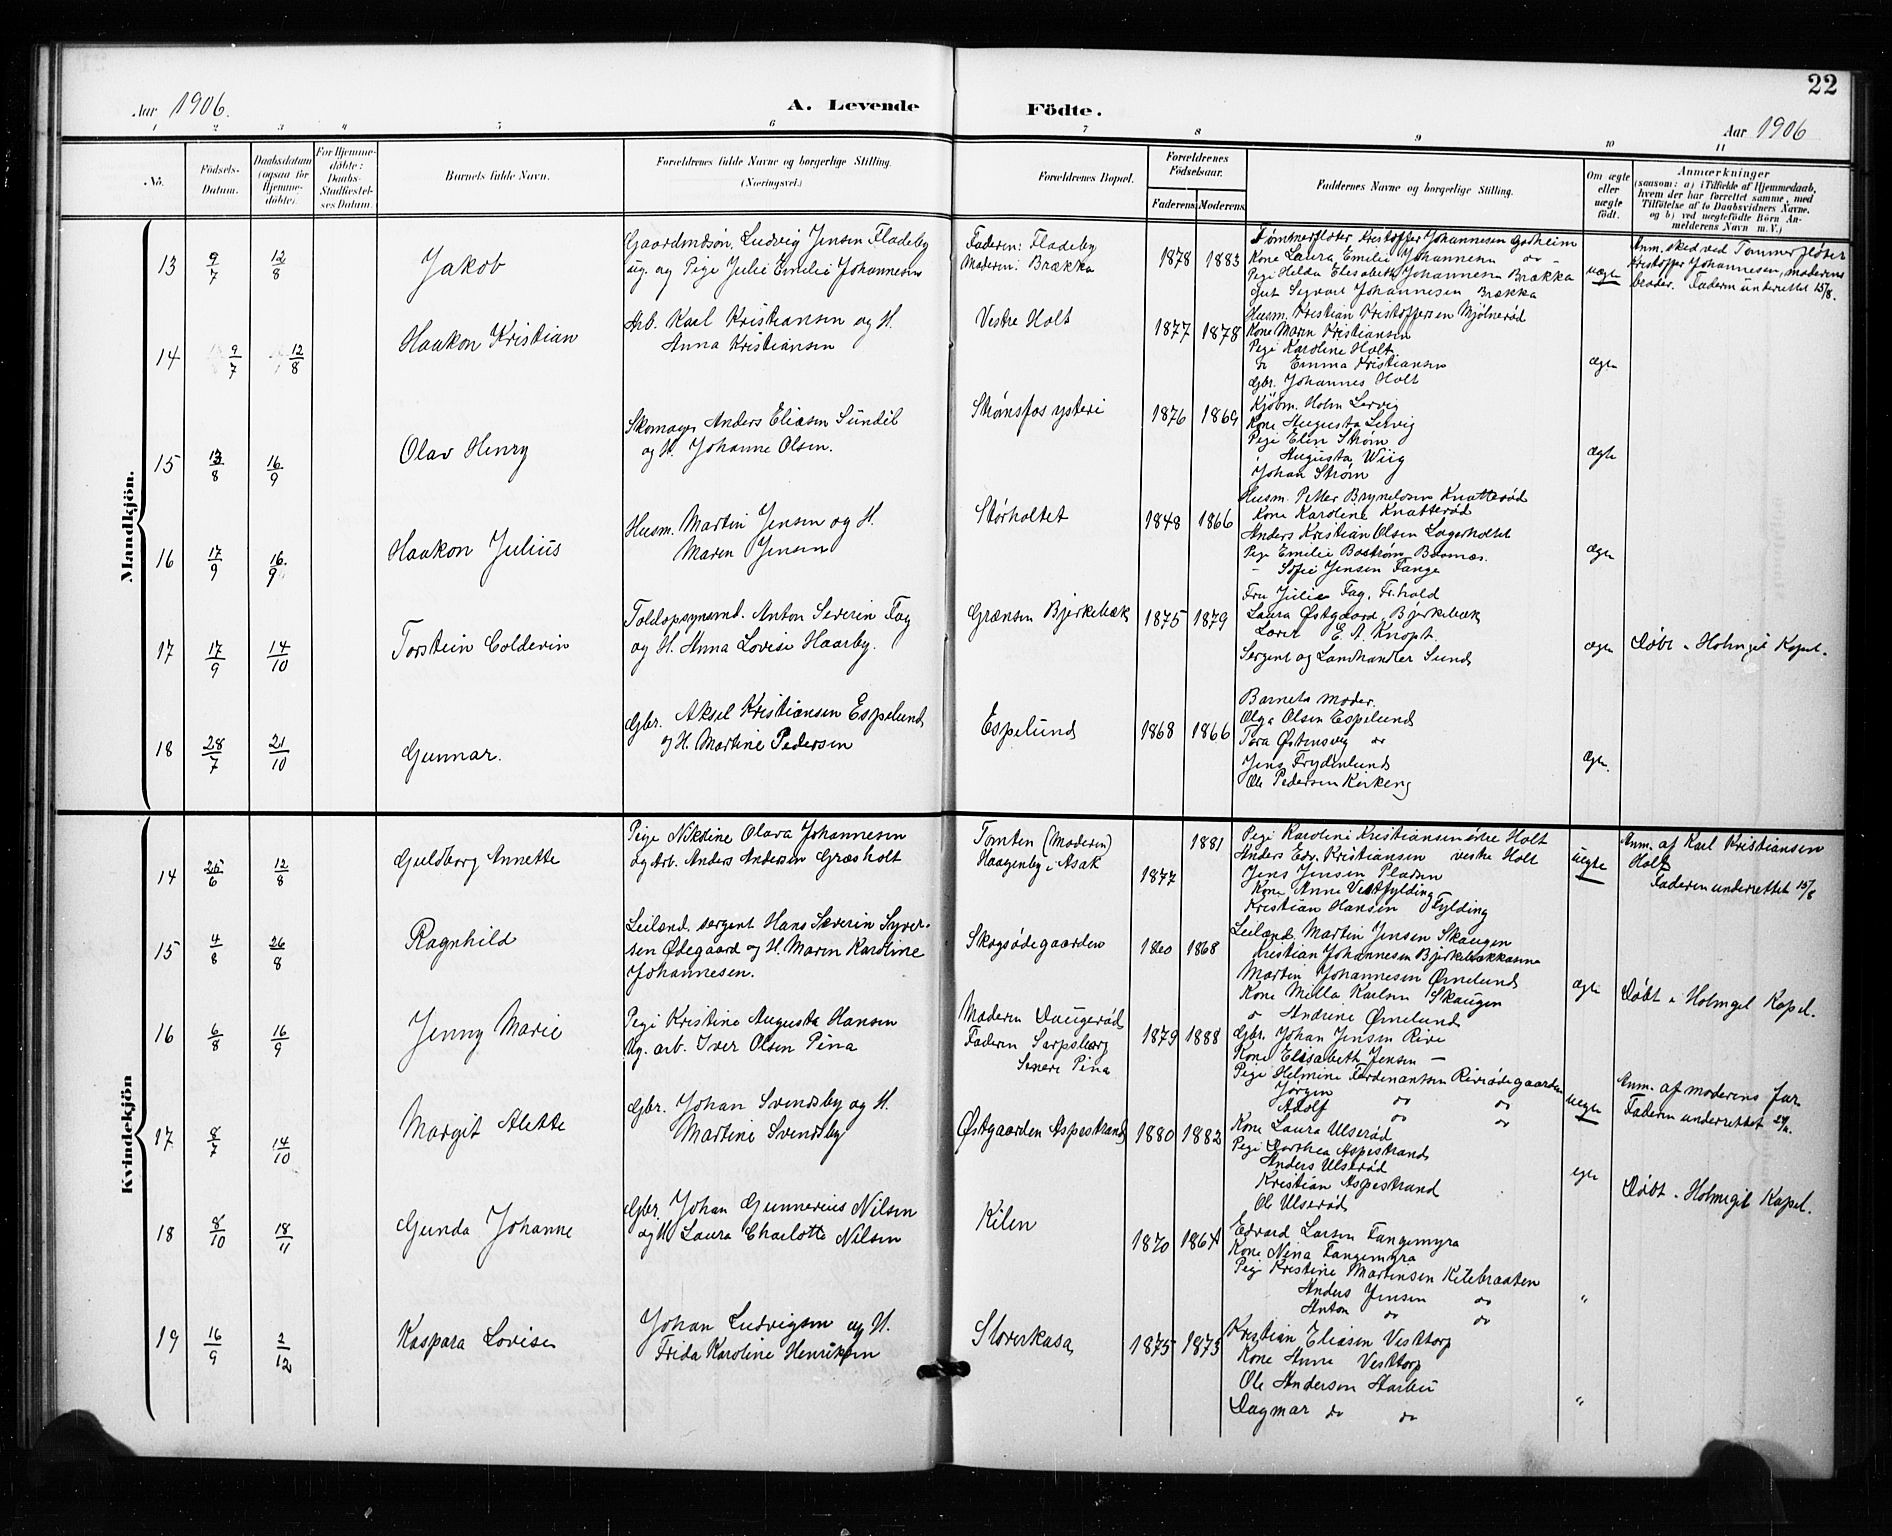 22
Aar 1906.
A. Levende Födte.
Aar 1906
1 2 3 4 5 6 7 8 9 10 11
No.
Födsels-
Datum.
Daabsdatum
(ogsaa for
Hjemme-
döbte).
For Hjemme-
döbte:
Daabs-
Stadfæstel-
ses Datum.
Barnets fulde Navn.
Forældrenes fulde Navne og borgerlige Stilling.
(Næringsvei.)
Forældrenes Bopæl.
Forældrenes
Födselsaar.
Faderens Moderens
Faddernes Navne og borgerlige Stilling.
Om ægte
eller
uægte
födt.
Anmærkninger
(saasom: a) i Tilfælde af Hjemmedaab,
hvem der har forrettet samme, med
Tilföielse af to Daabsvidners Navne.
og b) ved uægtefödte Börn An-
melderens Navn m. V.)
Mandkjön.
13 9/7 12/8 Jakob
Gaardmdsøn. Ludvig Jensen Fladeby
ug. og Pige Julie Emelie Johannesen
Faderen: Fladeby
Moderen: Brækka
1878 1883
Tømmerfløter Kristoffer Johannesen Godheim
Kone Laura Emelie Johannesen do -
Pige Helda Elesabeth Johannesen Brækka
Gut Sigvart Johannesen Brækka
uægte
Anm. sked ved Tømmerfløter
Kristoffer Johannesen, moderens
broder. Faderen underrettet 15/8.
14 9/7 12/8 Haakon Kristian
Arb. Karl Kristiansen og H.
Anna Kristiansen
Vestre Holt
1877 1878
Husm. Kristian Kristoffersen Mjølnerød
Kone Maren Kristiansen
Pige Karoline Holt
do Emma Kristiansen
Gbr. Johannes Holt
ægte
15 13/8 16/9 Olav Henry
Skomager Anders Eliasen Sundil
og H. Johanne Olsen.
Strømsfos ysteri
1876 1869
Kjøbm. Holm Lervig
Kone Augusta Lervig
Pige Elen Strøm
Augusta Wiig
Johan Strøm
ægte
16 17/9 16/9 Haakon Julius
Husm. Martin Jensen og H.
Maren Jensen
Størholtet
1848 1866
Husm. Petter Brynelsen Knatterød
Kone Karoline Knatterød
Anders Kristian Olsen Lagerholtet
Pige Emelie Bostrøm
- Sofie Jensen Tange
ægte
17 17/9 14/10 Torstein Colderin
Toldopsynsmd. Anton Severin Fag
og H. Anna Lovise Haarby.
Grænsen Bjerkebæk
1875 1879
Fru Julie Fag, Fr.hald
Laura Østgaard, Bjerkebæk
Lærer E. A. Knopt.
Sergent og Landhandler Sund
ægte
Døbt i Holmgil Kapel.
18 28/7 21/10 Gunnar.
Gbr. Aksel Kristiansen Espelund
og H. Martine Pedersen
Espelund
1868 1866
Barnets Moder.
Olga Olsen Espelund
Tora Østensvig do
Jens Frydenlund
Ole Pedersen Kirkeng
ægte.
Kvindekjön
14 25/6 12/8 Guldborg Annette
Pige Nikoline Olava Johannesen
og Arb. Anders Andersen Græsholt
Tomten (Moderen)
Haagenby i Asak
1877 1881
Pige Karoline Kristiansen østre Holt
Anders Edv. Kristiansen vestre Holt
Jens Jensen Pladsen
Kone Anne Vestfylding
Kristian Hansen Fylding
uegte
Anm. af Karl Kristiansen
Holt
Faderen underrettet 15/8
15 4/8 26/8 Ragnhild
Leilænd. sergent Hans Severin Syver-
sen Ødegaard og H. Maren Karoline
Johannesen.
Skogsødegaarden
1868
Leilænd Martin Jensen Skaugen
Kristian Johannesen Bjerkebækkasa
Martin Johannesen Ørnelund
Kone Milla Karlsen Skaugen
do Andrine Ørnelund
ægte
Døbt i Holmgil Kapel.
16 6/8 16/9 Jenny Marie
Pige Kristine Augusta Hansen
Ug. arb. Iver Olsen Pina
Moderen Daugerød
Faderen Sarpsborg
Senere Pina
1879 1888
Gbr. Johan Jensen Rive
Kone Elisabeth Jensen -
Pige Helmine Ferdenantsen Rivsødegaarden
Jørgen do do
Adolf do do
uegte
Anm. af moderens far
Faderen underrettet
17 8/7 14/10 Margit Alette
Gbr. Johan Svendsby og H.
Martine Svendsby
Østgaarden Aspestrand
1880 1882
Kone Laura Ulserød
Pige Dorthea Aspestrand
Anders Ulserød
Kristian Aspestrand
Ole Ulserød
egte
Døbt i Holmegil Kapel.
18 8/10 18/11 Gunda Johanne
Gbr. Johan Gunnerius Nilsen
og H Laura Charlotte Nilsen
Kilen
1870 1864
Edvard Larsen Tangemyra
Kone Nina Tangemyra
Pige Kristine Martinsen Kilebraaten
Anders Jensen do
Anton do do
"
19 16/9 2/12 Kaspara Lovise
Johan Ludvigsen og H.
Frida Karoline Henriksen
Storerkasa
1875 1873
Kristian Eliasen Vesttorp
Kone Anne Vesttorp
Ole Anderson Harbu
Dagmar do do
"